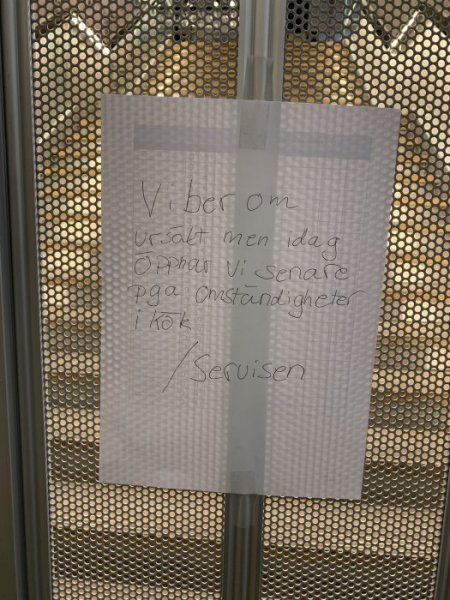 Vi ber om
ursäkt men idag
öppnar vi senare
pga omständigheter
i kök
/Servisen